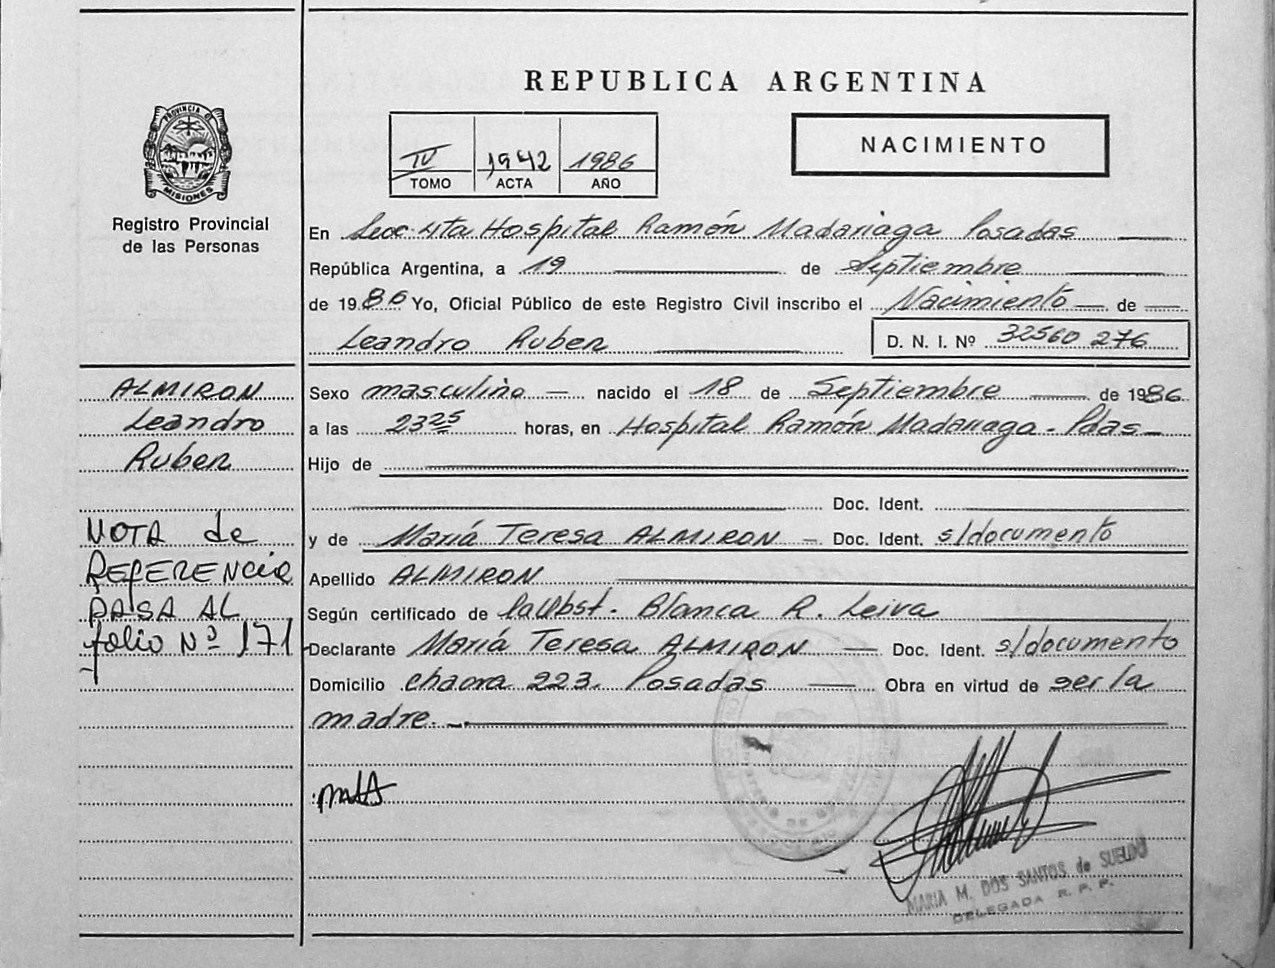 REPUBLICA ARGENTINA
PROVINCIA DE
MISIONES
Registro Provincial
de las Personas
IV 1942 1986
TOMO ACTA AÑO
NACIMIENTO
En Secc. 4ta Hospital Ramón Madariaga Posadas
República Argentina, a 19 de Septiembre
de 1986 Yo, Oficial Público de este Registro Civil inscribo el Nacimiento de
Leandro Ruben D. N. I. Nº 32560 276
ALMIRON
Leandro
Ruben
NOTA de
REFERENCIA
PASA AL
folio Nº 171
Sexo masculino nacido el 18 de Septiembre de 1986
a las 23 25 horas, en Hospital Ramón Madariaga - Pdas
Hijo de
Doc. Ident.
y de Mariá Teresa ALMIRON Doc. Ident. s/documento
Apellido ALMIRON
Según certificado de la Obst. Blanca R. Leiva
Declarante Mariá Teresa ALMIRON Doc. Ident. s/documento
Domicilio chacra 223. Posadas Obra en virtud de ser la
madre
MARIA M. DOS SANTOS de SUELDO
DELEGADA R. P. P.